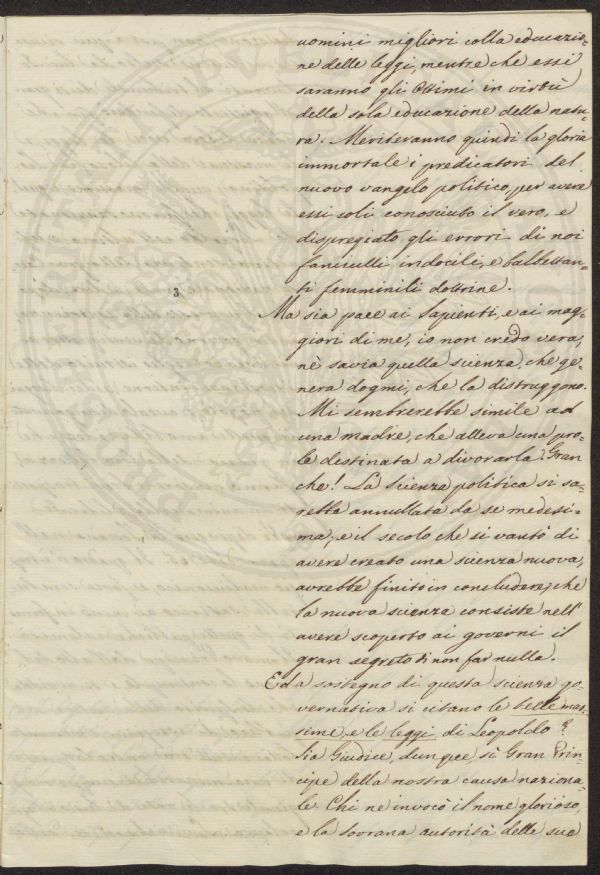 uomini migliori colla educazio-
ne delle leggi, mentre che essi
saranno gli Ottimi in virtù
della sola educazione della natu-
ra. Meriteranno quindi la gloria
immortale i predicatori del
nuovo vangelo politico, per avere
essi soli conosciuto il vero, e
dispregiato gli errori di noi
fanciulli indocili, e balbettan-
ti femminili dottrine.
3
Ma sia pace ai Sapienti, e ai mag-
giori di me, io non credo vera,
nè savia quella scienza, che ge-
nera dogmi, che la distruggono.
Mi sembrerebbe simile ad
una madre, che alleva una pro-
le destinata a divorarla. Gran
che! La Scienza politica si sa-
rebbe annullata da se medesi-
ma, e il secolo che si vantò di
avere creato una scienza nuova,
avrebbe finito in concludere, che
la nuova scienza consiste nell'
avere scoperto ai governi il
gran segreto di non far nulla.
Ed a sostegno di questa scienza go-
vernativa si citano le belle mas-
sime, e le leggi di Leopoldo?
Sia Giudice, dunque sì Gran Prin-
cipe della nostra causa naziona-
le. Chi ne invocò il nome glorioso,
e la sovrana autorità delle sue